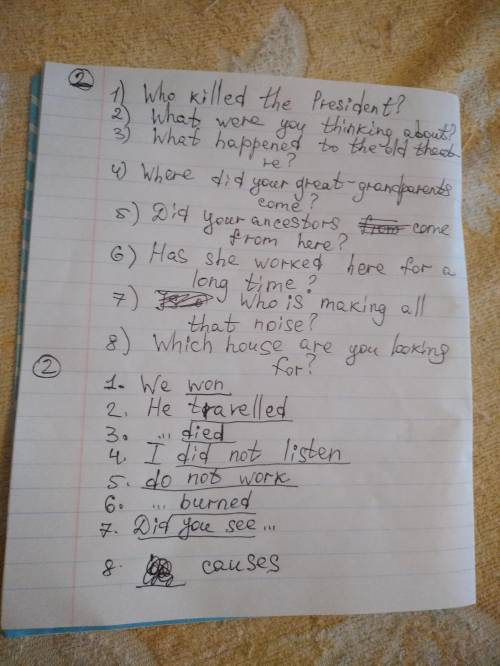 2
1) Who killed the President?
2) What were you thinking about?
3) What happened to the old theat
re?
4) Where did your great-grandparents
come?
5) Did your ancestors come
from here?
6) Has she worked here for a
long time?
7) Who is making all
that noise?
8) Which house are you looking
for?
2
1. We won
2. He travelled
3. ... died
4. I did not listen
5. do not work
6. ... burned
7. Did you see ...
8. causes